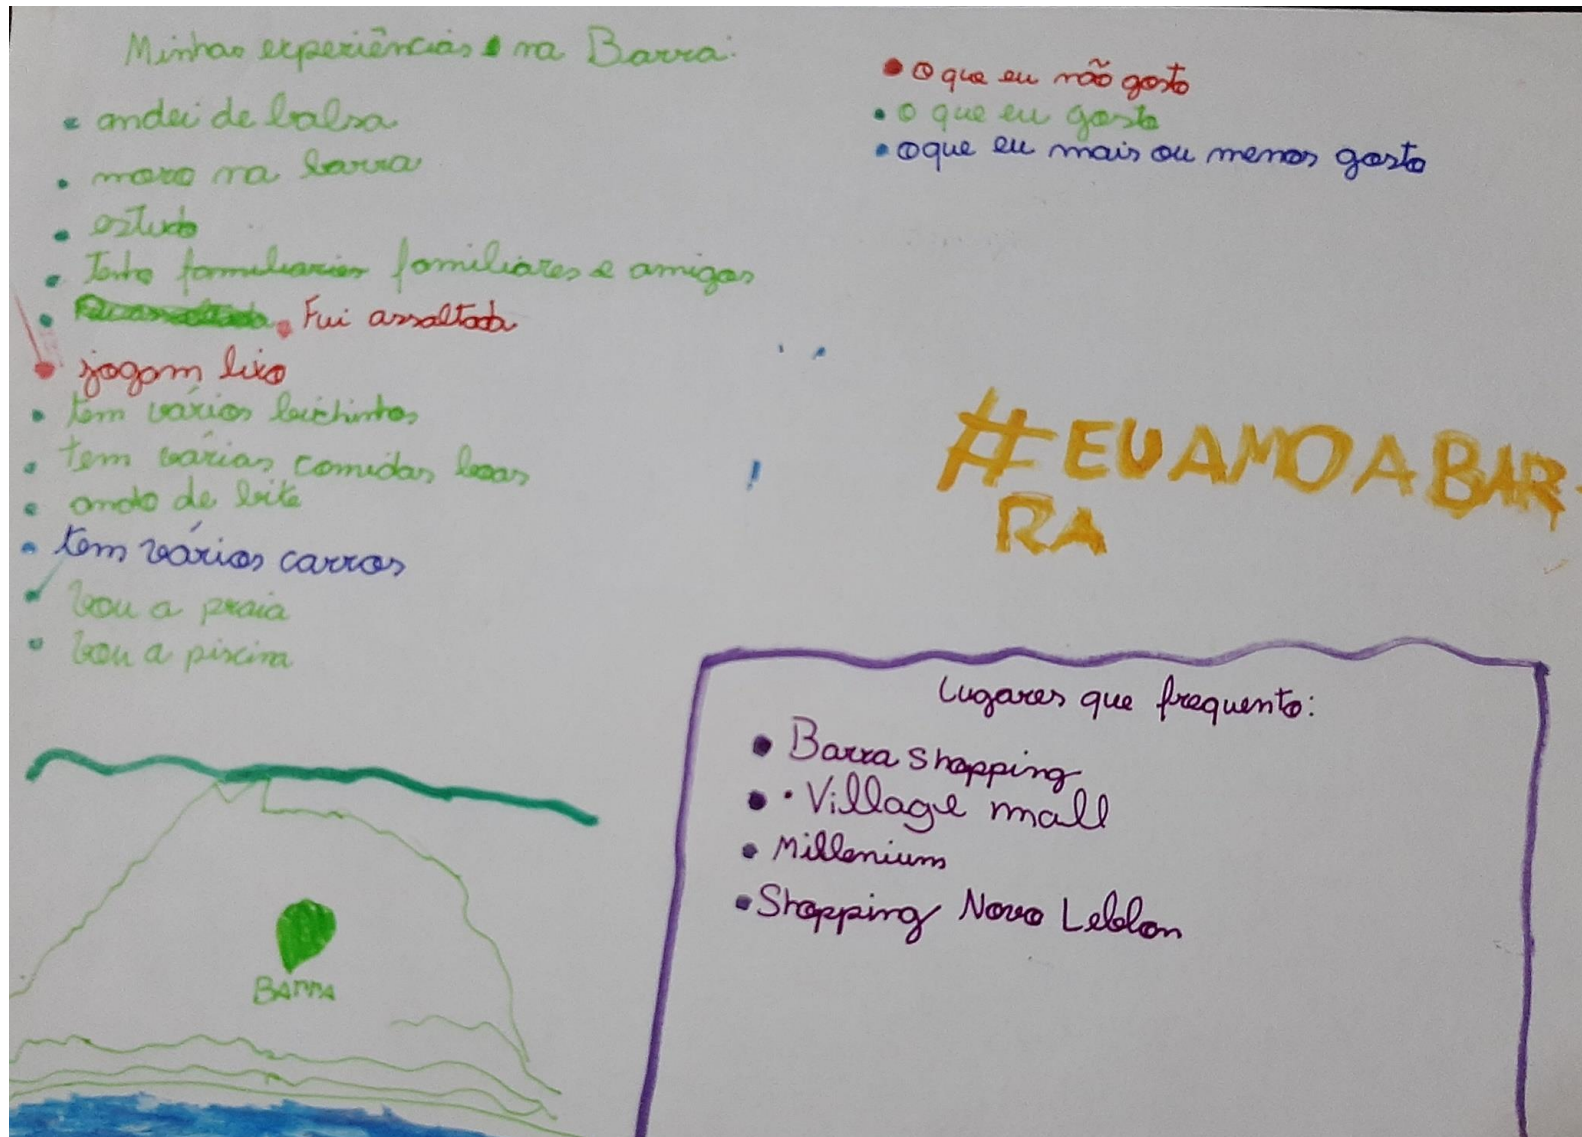 Minhas experiências na Barra:
• andei de balsa
• moro na barra
• estudo
• Tenho familiaries familiares e amigos
• Fui assaltada
• jogam lixo
• tem vários bichinhos
• tem várias comidas boas
• ando de bike
• tem vários carros
• vou a praia
• vou a piscina
• o que eu não gosto
• o que eu gosto
• oque eu mais ou menos gosto
#EU AMO A BAR-
RA
Lugares que frequento:
• Barra shopping
• Village mall
• Millenium
• Shopping Novo Leblon
BARRA